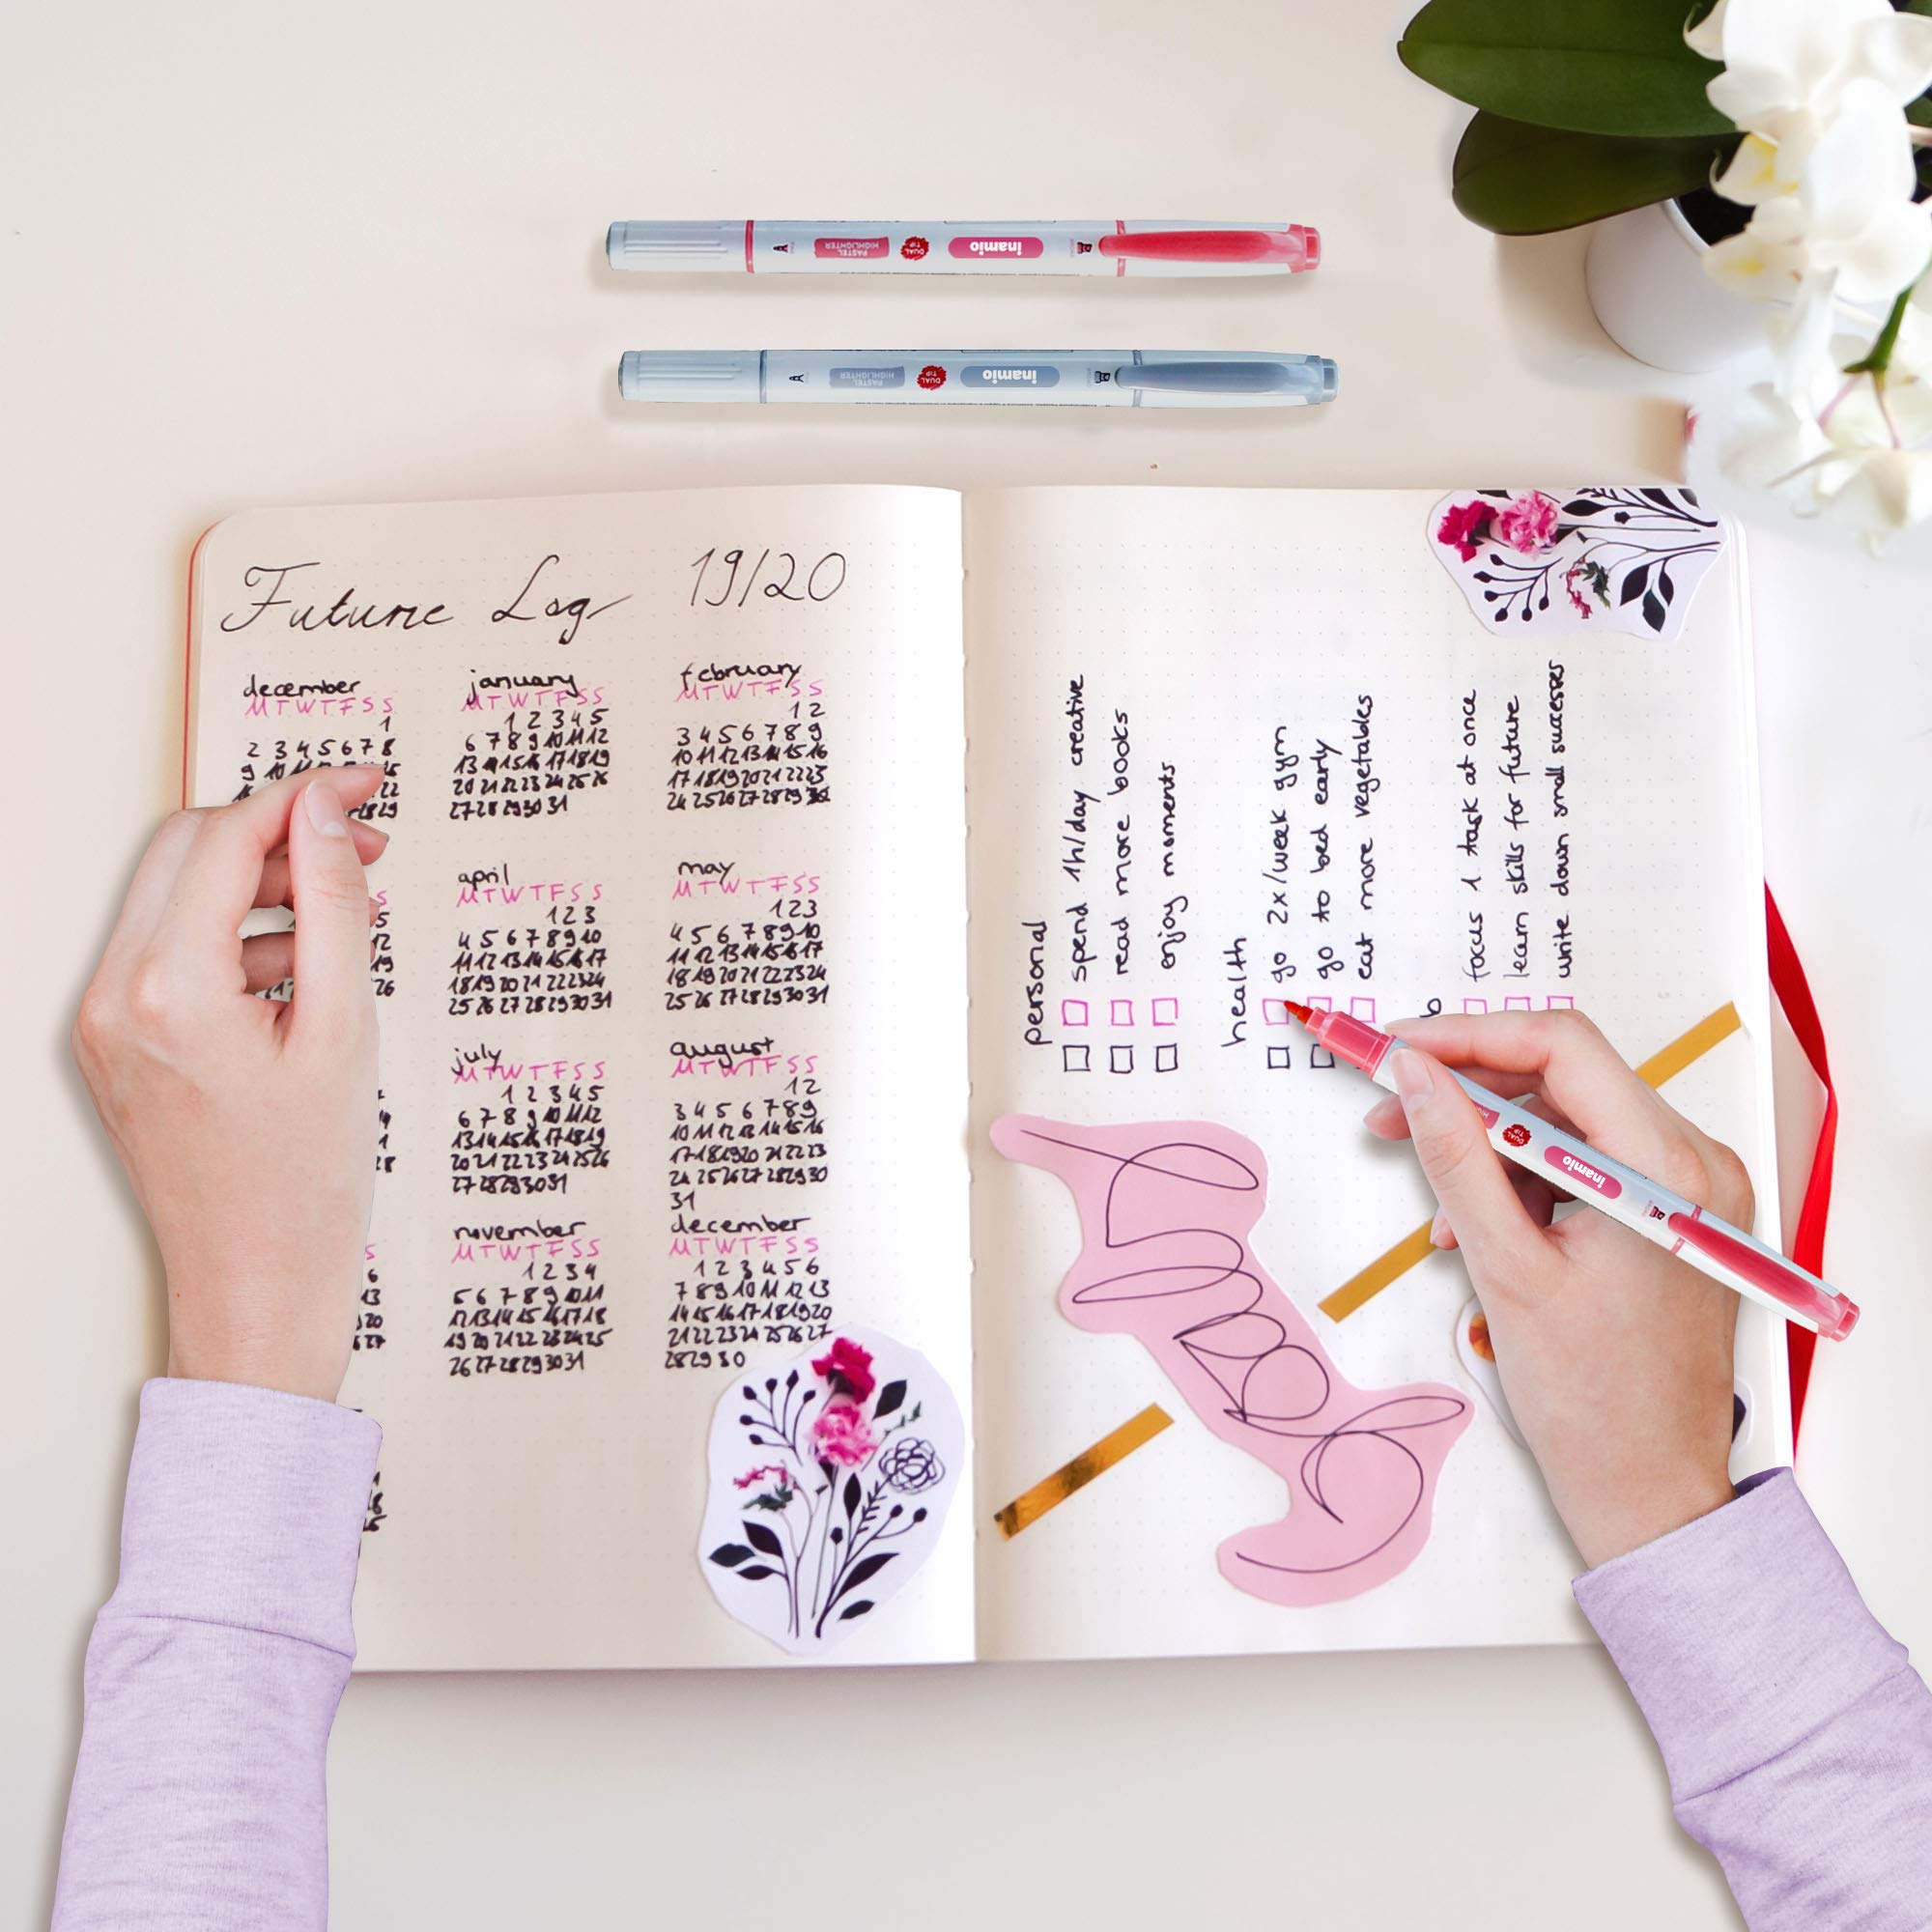 inamio
DUAL TIP
PASTEL HIGHLIGHTER
inamio
DUAL TIP
PASTEL HIGHLIGHTER
Future Log 19/20
december
M T W T F S S
1
2 3 4 5 6 7 8
9 10
22
28 29
january
M T W T F S S
1 2 3 4 5
6 7 8 9 10 11 12
13 14 15 16 17 18 19
20 21 22 23 24 25 26
27 28 29 30 31
february
M T W T F S S
1 2
3 4 5 6 7 8 9
10 11 12 13 14 15 16
17 18 19 20 21 22 23
24 25 26 27 28 29
S
5
12
19
26
april
M T W T F S S
1 2 3
4 5 6 7 8 9 10
11 12 13 14 15 16 17
18 19 20 21 22 23 24
25 26 27 28 29 30 31
may
M T W T F S S
1 2 3
4 5 6 7 8 9 10
11 12 13 14 15 16 17
18 19 20 21 22 23 24
25 26 27 28 29 30 31
july
M T W T F S S
1 2 3 4 5
6 7 8 9 10 11 12
13 14 15 16 17 18 19
20 21 22 23 24 25 26
27 28 29 30 31
august
M T W T F S S
1 2
3 4 5 6 7 8 9
10 11 12 13 14 15 16
17 18 19 20 21 22 23
24 25 26 27 28 29 30
31
S
6
13
20
27
november
M T W T F S S
1 2 3 4
5 6 7 8 9 10 11
12 13 14 15 16 17 18
19 20 21 22 23 24 25
26 27 28 29 30 31
december
M T W T F S S
1 2 3 4 5 6
7 8 9 10 11 12 13
14 15 16 17 18 19 20
21 22 23 24 25 26 27
28 29 30
personal
spend 1h/day creative
read more books
enjoy moments
health
go 2x/week gym
go to bed early
eat more vegetables
b
focus 1 task at once
learn skills for future
write down small successes
DUAL TIP
inamio